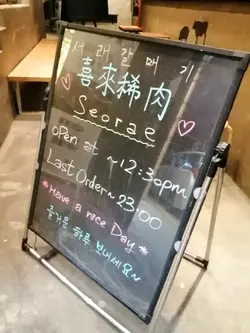 서래갈매기
喜來稀肉
Seorae
oPen at ~12:30pm
Last Order~23:00
*Have a nice Day*
즐거운 하루 보내세요~